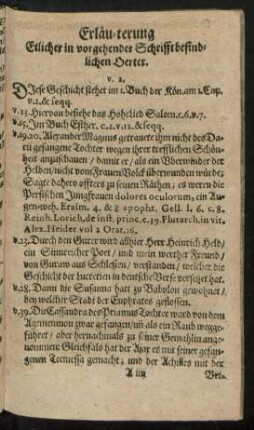 Erläuterung
Etlicher in vorgehender Schrifft befind-
lichen Oerter.
v. 2.
DIese Geschicht stehet im 1. Buch der Kön. am 1. Cap.
v. 2. & seqq.
v. 13. Hiervon besehe das Hohelied Salom. c. 6. v. 7.
v. 15. Im Buch Esther. c. 2. v. 12. & seqq.
v. 19. 20. Alexander Magnus getrauete ihm nicht des Da-
rii gefangene Tochter wegen ihrer trefflichen Schön-
heit anzuschauen / damit er / als ein Vberwinder der
Helden / nicht vom Frauen Volck überwunden würde;
Sagte dahero offters zu seinen Räthen; es weren die
Persischen Jungfrauen dolores oculorum, ein Au-
gen-weh. Erasm. 4. & 8 apopht. Gell. l. 6. c. 8.
Reinh. Lorich. de inst. princ. c. 19. Plutarch. in vit.
Alex. Heider. vol 2 Orat. 16.
v. 23. Durch den Gurer wird allhier Herr Heinrich Held /
ein Sinnreicher Poet / und mein werther Freund /
von Guraw aus Schlesien / verstanden / welcher die
Geschicht der Lucretien in deutsche Verse versetzet hat.
v. 28. Dann die Susanna hatt zu Babylon gewohnet /
bey welcher Stadt der Euphrates geflossen.
v. 39. Die Cassandra des Priamus Tochter ward von dem
Agamemnon zwar gefangen / uñ als ein Raub wegge-
führet / aber hernachmals zu seiner Gemahlin ange-
nommen: Gleichfals hat der Ajax es mit seiner gefan-
genen Tecmessa gemacht; und der Achilles mit der
A iiij